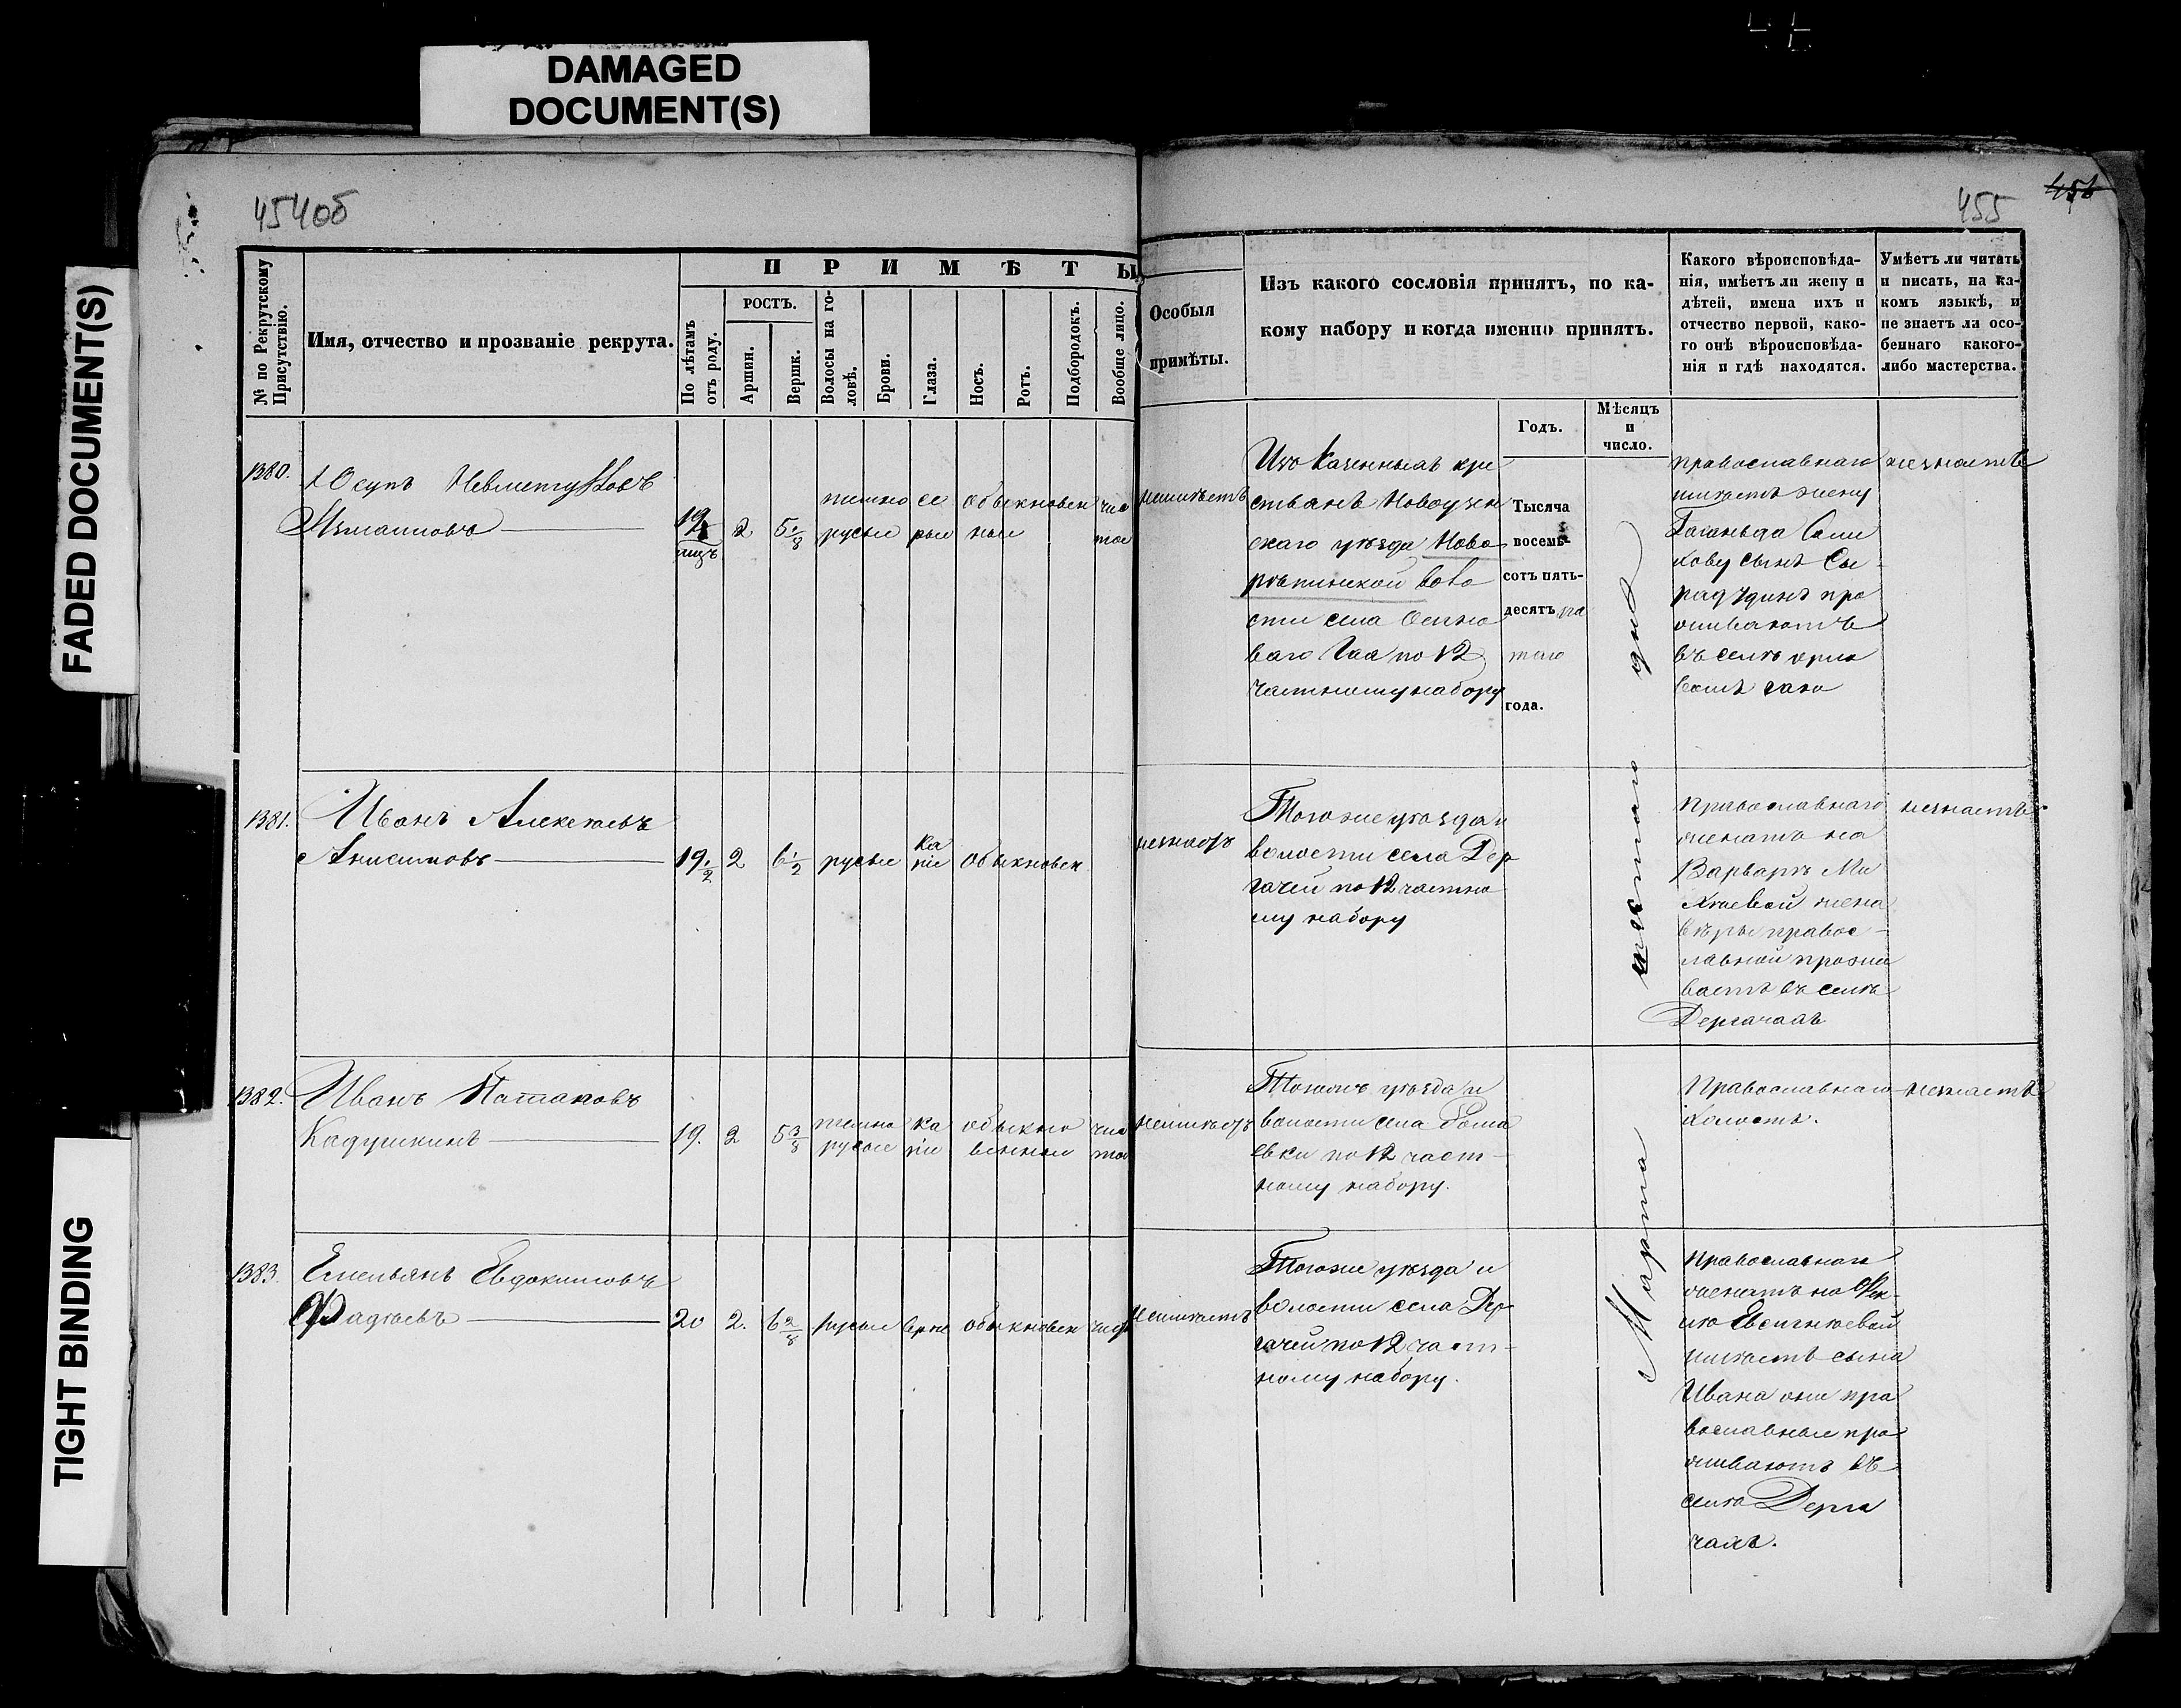 DAMAGED
DOCUMENT(S)
FADED DOCUMENT(S)
TIGHT BINDING
454об
455
№ по Рекрутскому
Присутствію.
Имя, отчество и прозваніе рекрута.
ПРИМѢТЫ
По лѣтамъ
отъ роду.
РОСТЪ.
Аршин.
Вершк.
Волосы на го-
ловѣ.
Брови.
Глаза.
Носъ.
Ротъ.
Подбородокъ.
Вообще лицо.
Особыя
примѣты.
Изъ какого сословія принятъ, по ка-
кому набору и когда именно принятъ.
Годъ.
Мѣсяцъ
и
число.
Какого вѣроисповѣда-
нія, имѣетъ ли жену и
дѣтей, имена ихъ и
отчество первой, како-
го онѣ вѣроисповѣда-
нія и гдѣ находятся.
Умѣетъ ли читать
и писать, на ка-
комъ языкѣ, и
не знаетъ ли осо-
беннаго какого-
либо мастерства.
1380.
Юсупъ
2
5 1/8
темно
русые
се
рые
обыкновен
ные
чис
тое
неимѣетъ
Изъ Казенныхъ кре
стьянъ Новоузен
скаго уѣзда Ново
рѣпинской воло
сти села Осино
ваго Гая по 12
частному набору
Тысяча
восемь-
сотъ пять-
десятъ пя
таго
года.
шестаго дня
Марта
православнаго
имѣетъ жену
сынъ
про
живаютъ
въ селѣ
незнаетъ
1381.
Иванъ Алексѣевъ
Анисимовъ
19 1/2
2
6 1/2
русые
ка
ріе
обыкновен
Тогоже уѣзда и
волости села Дер
гачей по 12 частно
му набору
Православнаго
женатъ на
Варварѣ Ми
хѣевой жена
вѣры правос-
лавной прожи
ваетъ въ селѣ
Дергачахъ
незнаетъ
1382.
Иванъ Потаповъ
Кадушкинъ
19.
2
5 3/8
темно
русые
ка
ріе
обыкно
венные
чис
тое
Тогожъ уѣзда и
волости села Сафа
евки по 12 част-
ному набору.
Православнаго
холостъ.
незнаетъ
1383.
Емельянъ Евдокимовъ
Фадѣевъ
20
2.
6 2/8
русые
обыкновен
неимѣетъ
Тогоже уѣзда и
волости села Дер
гачей по 12 част-
ному набору.
Православнаго
женатъ на Фек-
лѣ Евсигнѣевой
имѣетъ сына
Ивана они пра
вославные про
живаютъ въ
селѣ Дерга
чахъ.